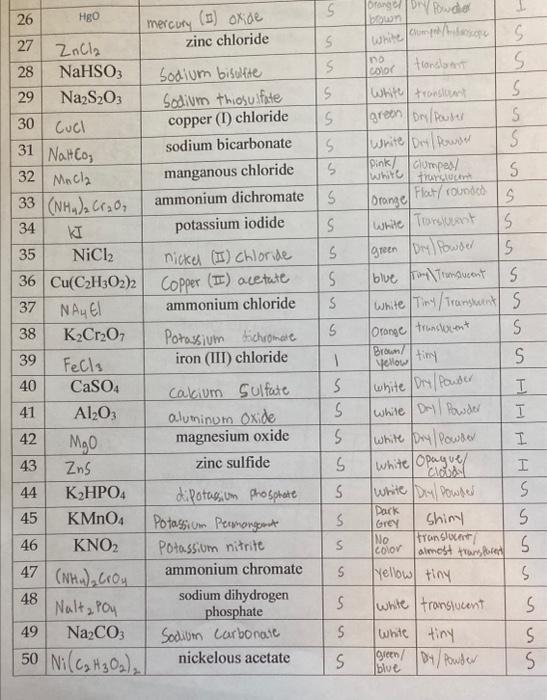 26 HgO mercury (II) oxide S orange/ brown Dry/Powder I
27 ZnCl2 zinc chloride S white S
28 NaHSO3 Sodium bisulfite S no color translucent S
29 Na2S2O3 Sodium thiosulfate S white translucent S
30 CuCl copper (I) chloride S green Dry/Powder S
31 NaHCO3 sodium bicarbonate S white Dry/Powder S
32 MnCl2 manganous chloride S pink/ white clumped/ translucent S
33 (NH4)2Cr2O7 ammonium dichromate S Orange Flat/rounded S
34 KI potassium iodide S white Translucent S
35 NiCl2 nickel (II) chloride S green Dry/Powder S
36 Cu(C2H3O2)2 Copper (II) acetate S blue Tiny/Translucent S
37 ammonium chloride S white Tiny/Translucent S
38 K2Cr2O7 Potassium dichromate S Orange translucent S
39 FeCl3 iron (III) chloride Brown/ Yellow tiny S
40 CaSO4 calcium Sulfate S white Dry/Powder I
41 Al2O3 aluminum oxide S white Dry/Powder I
42 MgO magnesium oxide S white Dry/Powder I
43 ZnS zinc sulfide S white Opaque/ cloudy I
44 K2HPO4 dipotassium phosphate S white Dry/Powder S
45 KMnO4 Potassium S Dark Grey Shiny S
46 KNO2 Potassium nitrite S No color translucent/ almost transparent S
47 (NH4)2CrO4 ammonium chromate S yellow tiny S
48 NaH2PO4 sodium dihydrogen phosphate S white translucent S
49 Na2CO3 Sodium Carbonate S white tiny S
50 Ni(C2H3O2)2 nickelous acetate S green/ blue Dry/Powder S